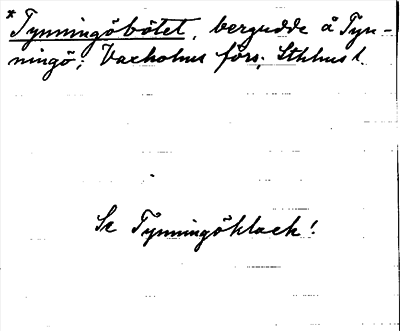 * Tynningöbötet, bergudde å Tyn-
ningö; Vaxholms förs; Sthlms l.
Se Tynningöklack!